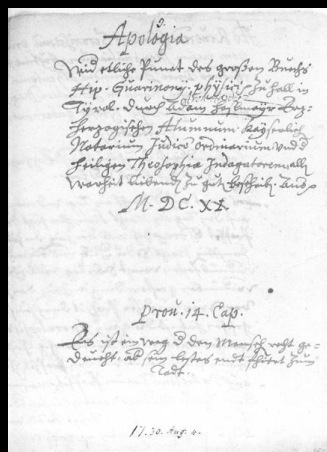 Apologia
Wid etliche Punct des großen Buchs
Hip. Guarinony. physici zu Hall in
Tyrol. durch Adam Haslmayr Erz-
Herzogischen Alumnum. Kayserlich
Notarium Judice ordinarium und d
heiligen Theosophia Indagatorem all
warheit liebend zu gut beschribn. Anno
M. DC. XX.
prou. 14. Cap.
Es ist ein weg d den Mensch recht ge-
deücht, ab sein lestes endt füeret zum
Todt.
17.30. Aug. 4.